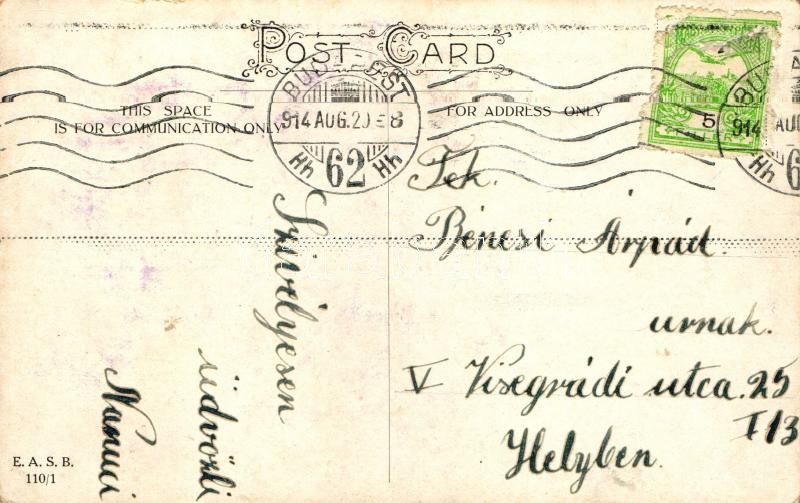 POST CARD
THIS SPACE
IS FOR COMMUNICATION ONLY
FOR ADDRESS ONLY
BUDAPEST
914 AUG. 20 E 8
Hh 62 Hh
5
914 AU
Tek.
Bénesi Árpád.
urnak.
V Visegrádi utca. 25
I 13
Helyben.
Szivélyesen
üdvözli
Nanuci
E. A. S. B.
110/1